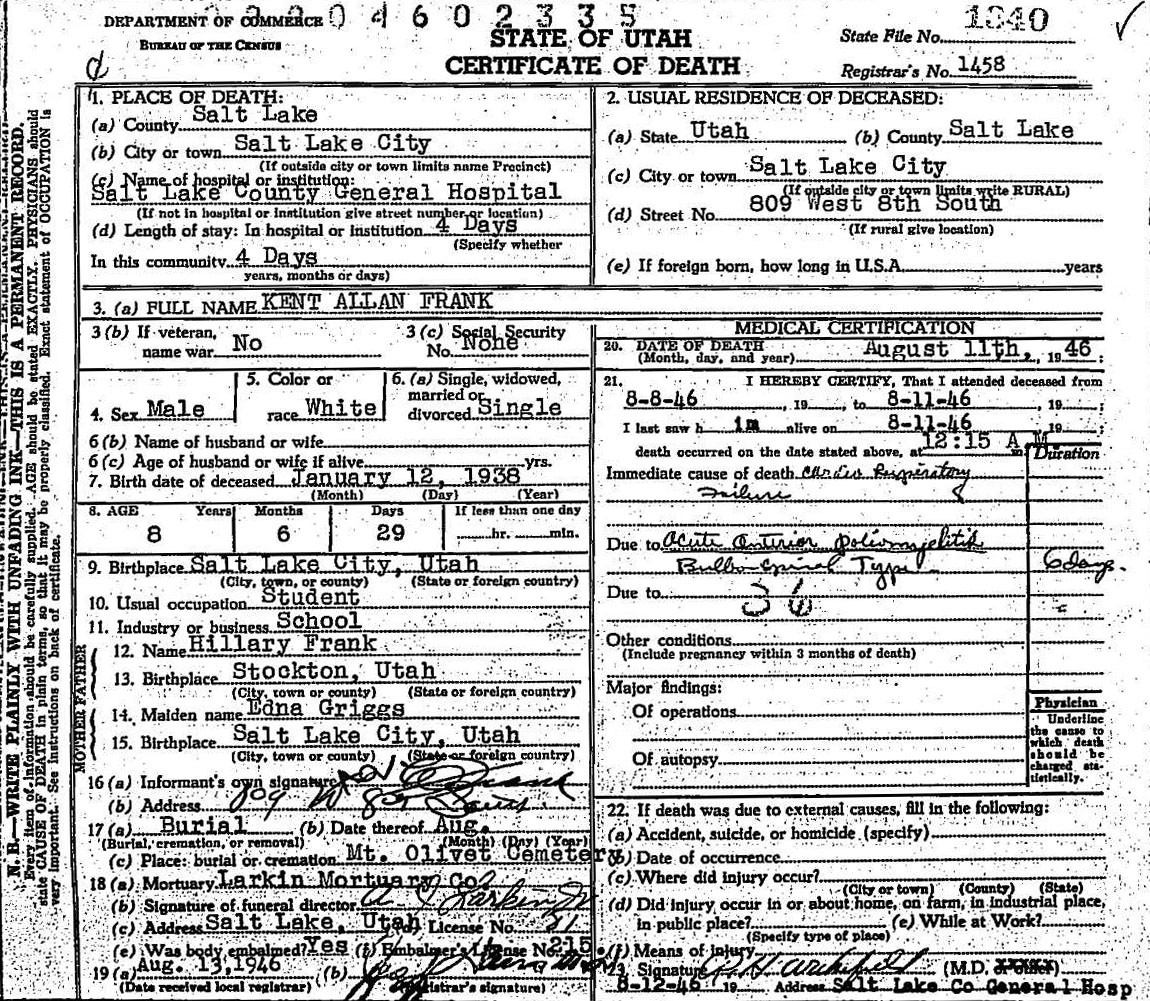 0 4 6 0 2 3 3 5
DEPARTMENT OF COMMERCE
BUREAU OF THE CENSUS
STATE OF UTAH
CERTIFICATE OF DEATH
State File No. 1840
Registrar's No. 1458
N. B.—WRITE PLAINLY WITH UNFADING INK—THIS IS A PERMANENT RECORD.
Every item of information should be carefully supplied. AGE should be stated EXACTLY. PHYSICIANS should
state CAUSE OF DEATH in plain terms, so that it may be properly classified. Exact statement of OCCUPATION is
very important. See instructions on back of certificate.
1. PLACE OF DEATH:
(a) County Salt Lake
(b) City or town Salt Lake City
(If outside city or town limits name Precinct)
(c) Name of hospital or institution:
Salt Lake County General Hospital
(If not in hospital or institution give street number or location)
(d) Length of stay: In hospital or institution 4 Days
(Specify whether
In this community 4 Days
years, months or days)
2. USUAL RESIDENCE OF DECEASED:
(a) State Utah (b) County Salt Lake
(c) City or town Salt Lake City
(If outside city or town limits write RURAL)
(d) Street No. 809 West 8th South
(If rural give location)
(e) If foreign born, how long in U.S.A. years
3. (a) FULL NAME KENT ALLAN FRANK
3 (b) If veteran, name war No
3 (c) Social Security No. None
4. Sex Male
5. Color or race White
6. (a) Single, widowed, married or divorced Single
6 (b) Name of husband or wife
6 (c) Age of husband or wife if alive yrs.
7. Birth date of deceased January 12, 1938
(Month) (Day) (Year)
8. AGE Years Months Days If less than one day
8 6 29 hr. min.
9. Birthplace Salt Lake City, Utah
(City, town, or county) (State or foreign country)
10. Usual occupation Student
11. Industry or business School
FATHER
12. Name Hillary Frank
13. Birthplace Stockton, Utah
(City, town or county) (State or foreign country)
MOTHER
14. Maiden name Edna Griggs
15. Birthplace Salt Lake City, Utah
(City, town or county) (State or foreign country)
16 (a) Informant's own signature
(b) Address 809 W 8th South
17 (a) Burial (b) Date thereof Aug.
(Burial, cremation, or removal) (Month) (Day) (Year)
(c) Place: burial or cremation Mt. Olivet Cemetery
18 (a) Mortuary Larkin Mortuary Co.
(b) Signature of funeral director
(c) Address Salt Lake, Utah (d) License No. 31
(e) Was body embalmed? Yes (f) Embalmer's License No. 215
19 (a) Aug. 13, 1946 (b)
(Date received local registrar) (Registrar's signature)
MEDICAL CERTIFICATION
20. DATE OF DEATH
(Month, day, and year) August 11th, 1946;
21. I HEREBY CERTIFY, That I attended deceased from
8-8-46, 19 , to 8-11-46, 19 ;
I last saw h im alive on 8-11-46, 19 ;
death occurred on the date stated above, at 12:15 A.M. m
Duration
Immediate cause of death Cardio Respiratory
Failure
Due to Acute anterior poliomyelitis
Bulbo-spinal Type 6 days.
Due to 36
Other conditions
(Include pregnancy within 3 months of death)
Major findings:
Of operations
Of autopsy
Physician
Underline
the cause to
which death
should be
charged sta-
tistically.
22. If death was due to external causes, fill in the following:
(a) Accident, suicide, or homicide (specify)
(b) Date of occurrence
(c) Where did injury occur?
(City or town) (County) (State)
(d) Did injury occur in or about home, on farm, in industrial place,
in public place? (e) While at Work?
(Specify type of place)
(f) Means of injury
23. Signature (M.D. or other)
8-12-46 19 Address Salt Lake Co General Hosp